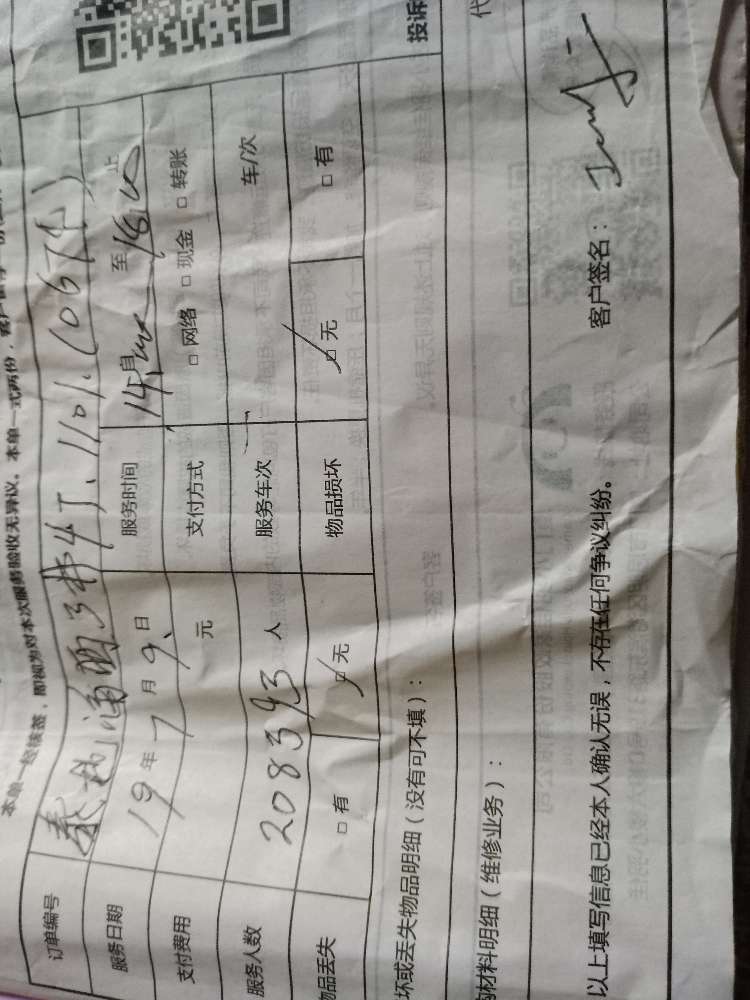 本单一经核签，即视为对本次服务验收无异议。本单一式两份，客户
订单编号 1101.(0671)
服务日期 19年7月9日 服务时间 14 至 18:00 止
支付费用 元 支付方式 □网络 □现金 □转账
服务人数 208393 人 服务车次 车/次
品丢失 □有 □无 物品损坏 □无 □有
坏或丢失物品明细（没有可不填）： 投诉
材料明细（维修业务）： 代
以上填写信息已经本人确认无误，不存在任何争议纠纷。 客户签名：